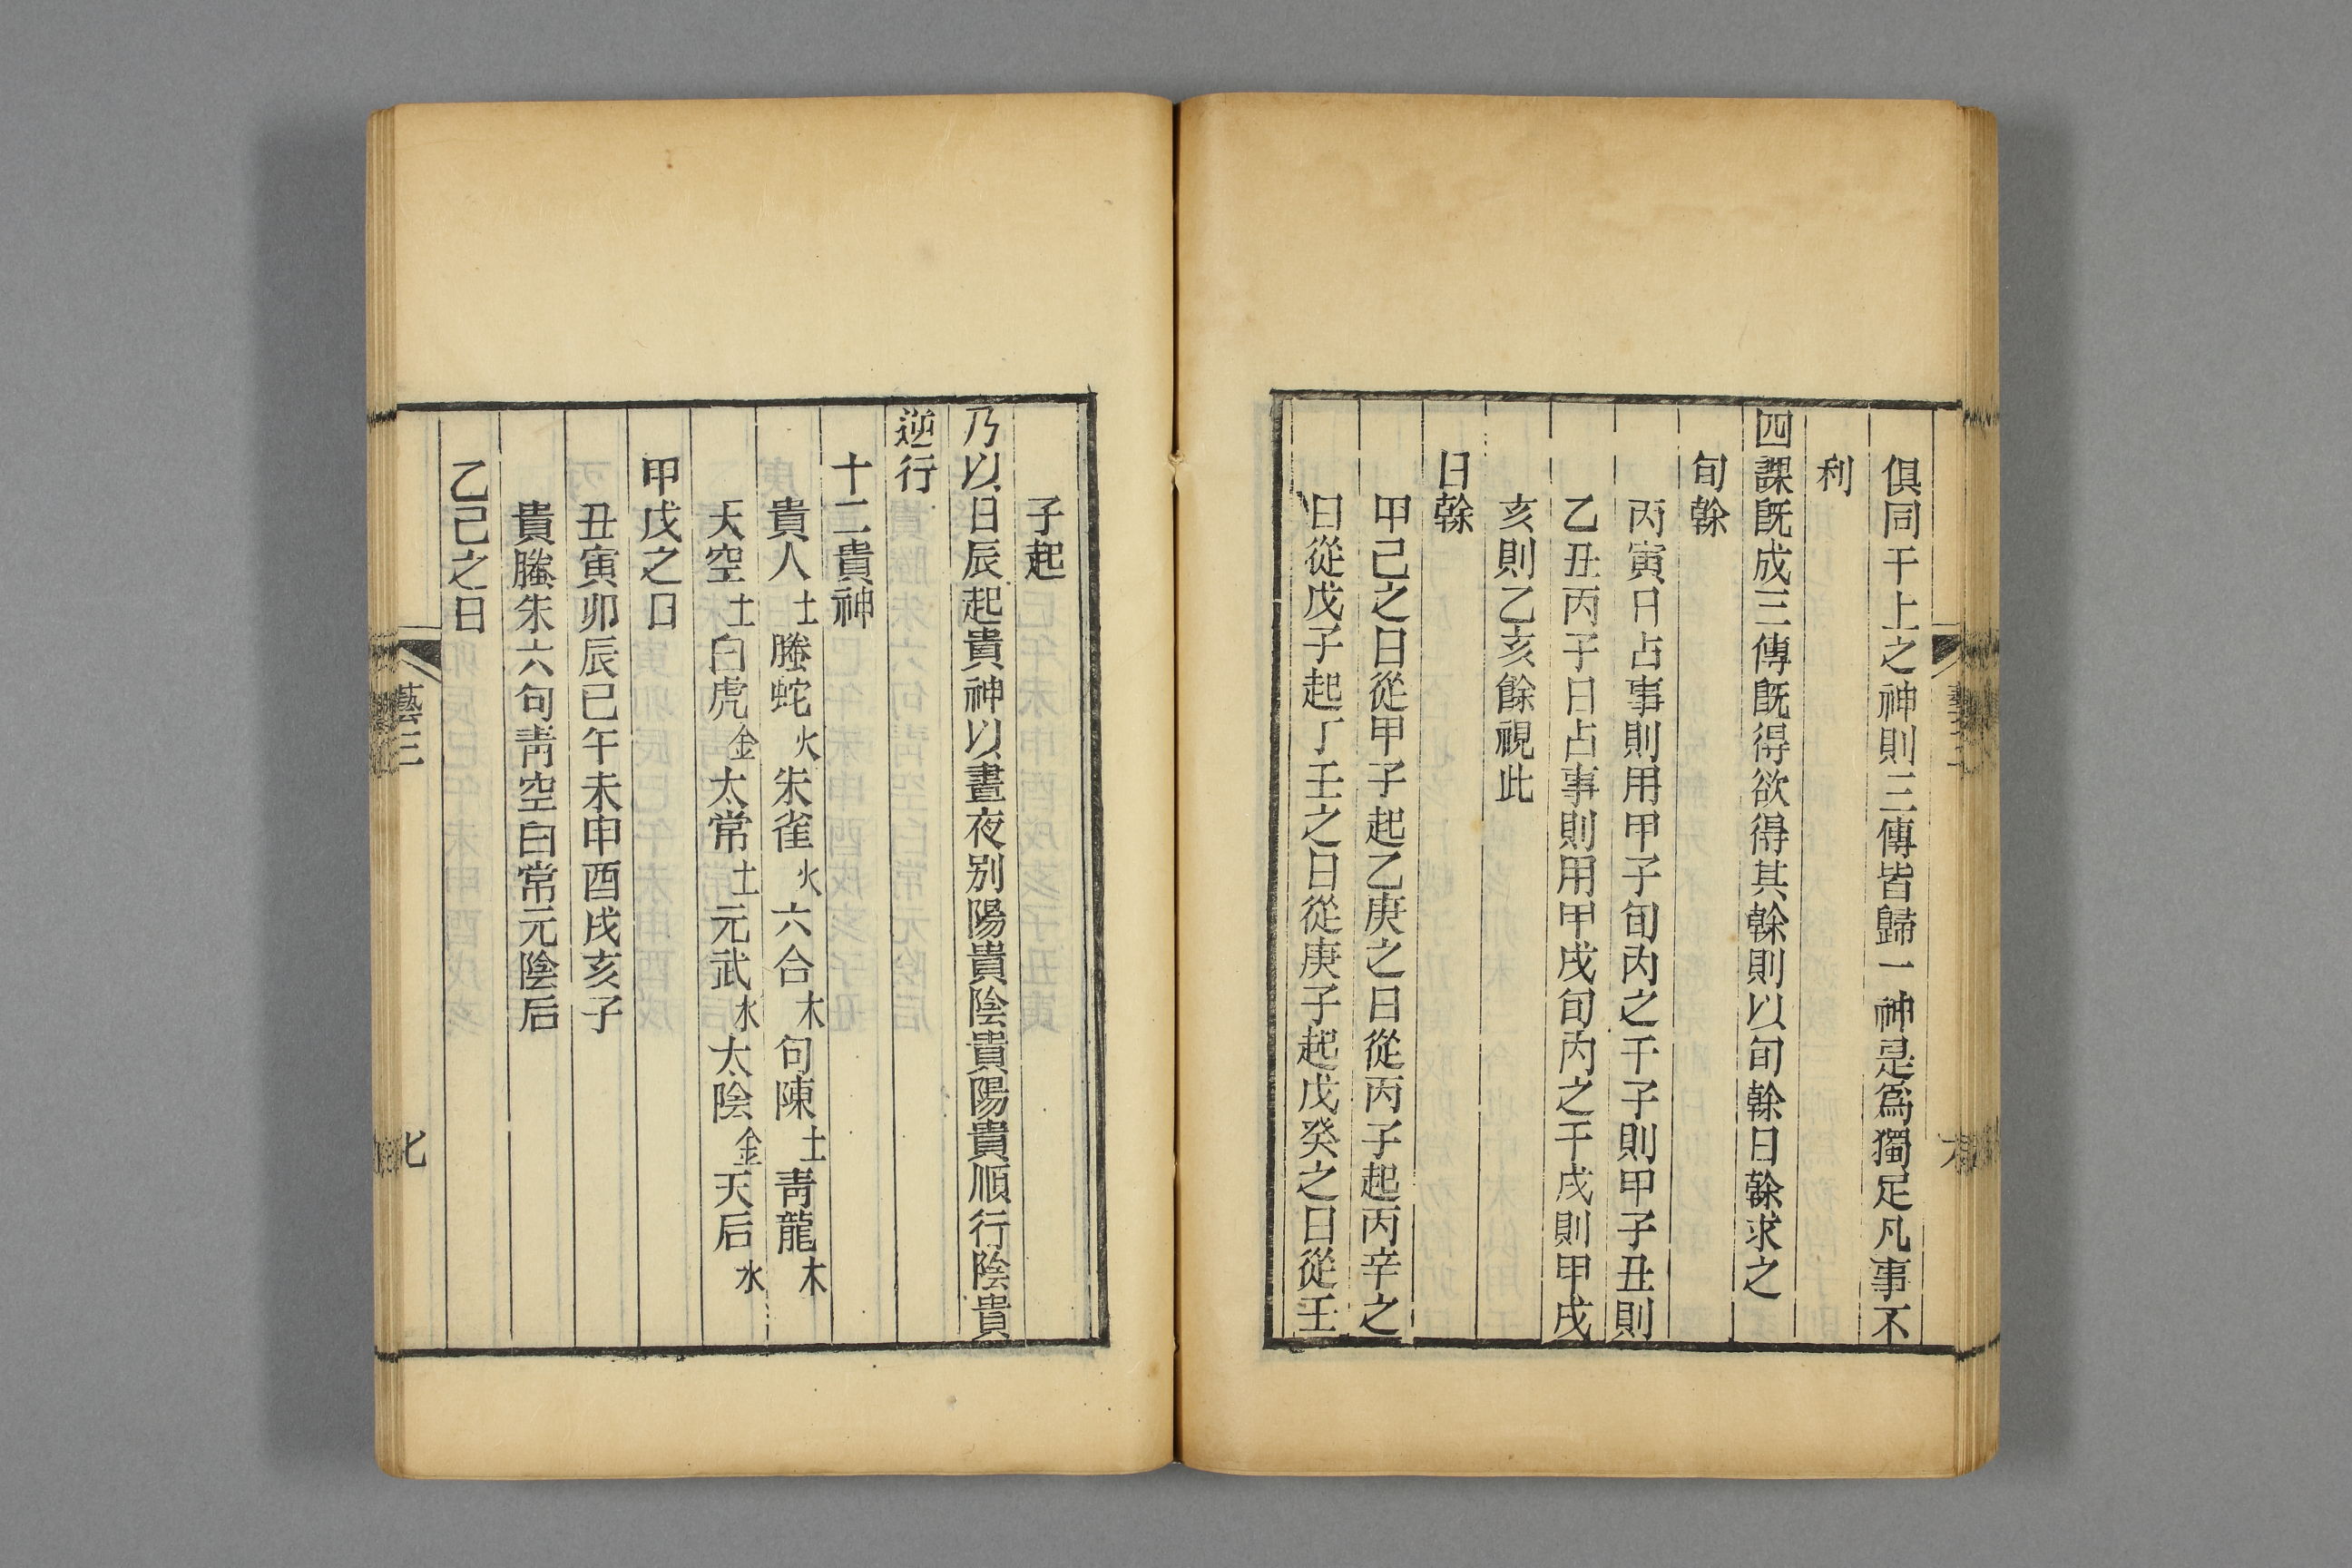 俱同干上之神則三傳皆歸一神是爲獨足凡事不
利
四課既成三傳既得欲得其榦則以旬榦日榦求之
旬榦
丙寅日占事則用甲子旬内之干子則甲子丑則
乙丑丙子日占事則用甲戌旬内之干戌則甲戌
亥則乙亥餘視此
日榦
甲己之日從甲子起乙庚之日從丙子起丙辛之
日從戊子起丁壬之日從庚子起戊癸之日從壬
子起
乃以日辰起貴神以晝夜别陽貴陰貴陽貴順行陰貴
逆行
十二貴神
貴人土螣蛇火朱雀火六合木句陳土青龍木
天空土白虎金太常土元武水太陰金天后水
甲戊之日
丑寅卯辰巳午未申酉戌亥子
貴螣朱六句青空白常元陰后
乙己之日
藝三
七